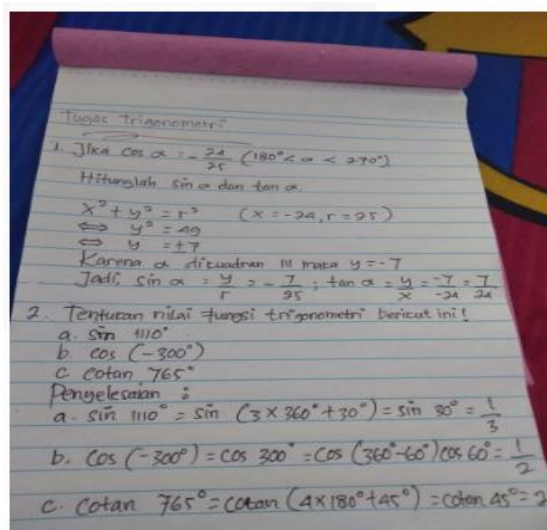 Tugas Trigonometri
1. Jika cos α = -24/25 (180° < α < 270°)
Hitunglah sin α dan tan α.
x² + y² = r² (x = -24, r = 25)
⇔ y² = 49
⇔ y = ±7
Karena α dikuadran III maka y = -7
Jadi, sin α = y/r = -7/25 ; tan α = y/x = -7/-24 = 7/24
2. Tentukan nilai fungsi trigonometri berikut ini!
a. sin 1110°
b. cos (-300°)
c cotan 765°
Penyelesaian :
a. sin 1110° = sin (3 × 360° + 30°) = sin 30° = 1/3
b. cos (-300°) = cos 300° = cos (360°-60°) cos 60° = 1/2
c. cotan 765° = cotan (4×180°+45°) = cotan 45° = 2